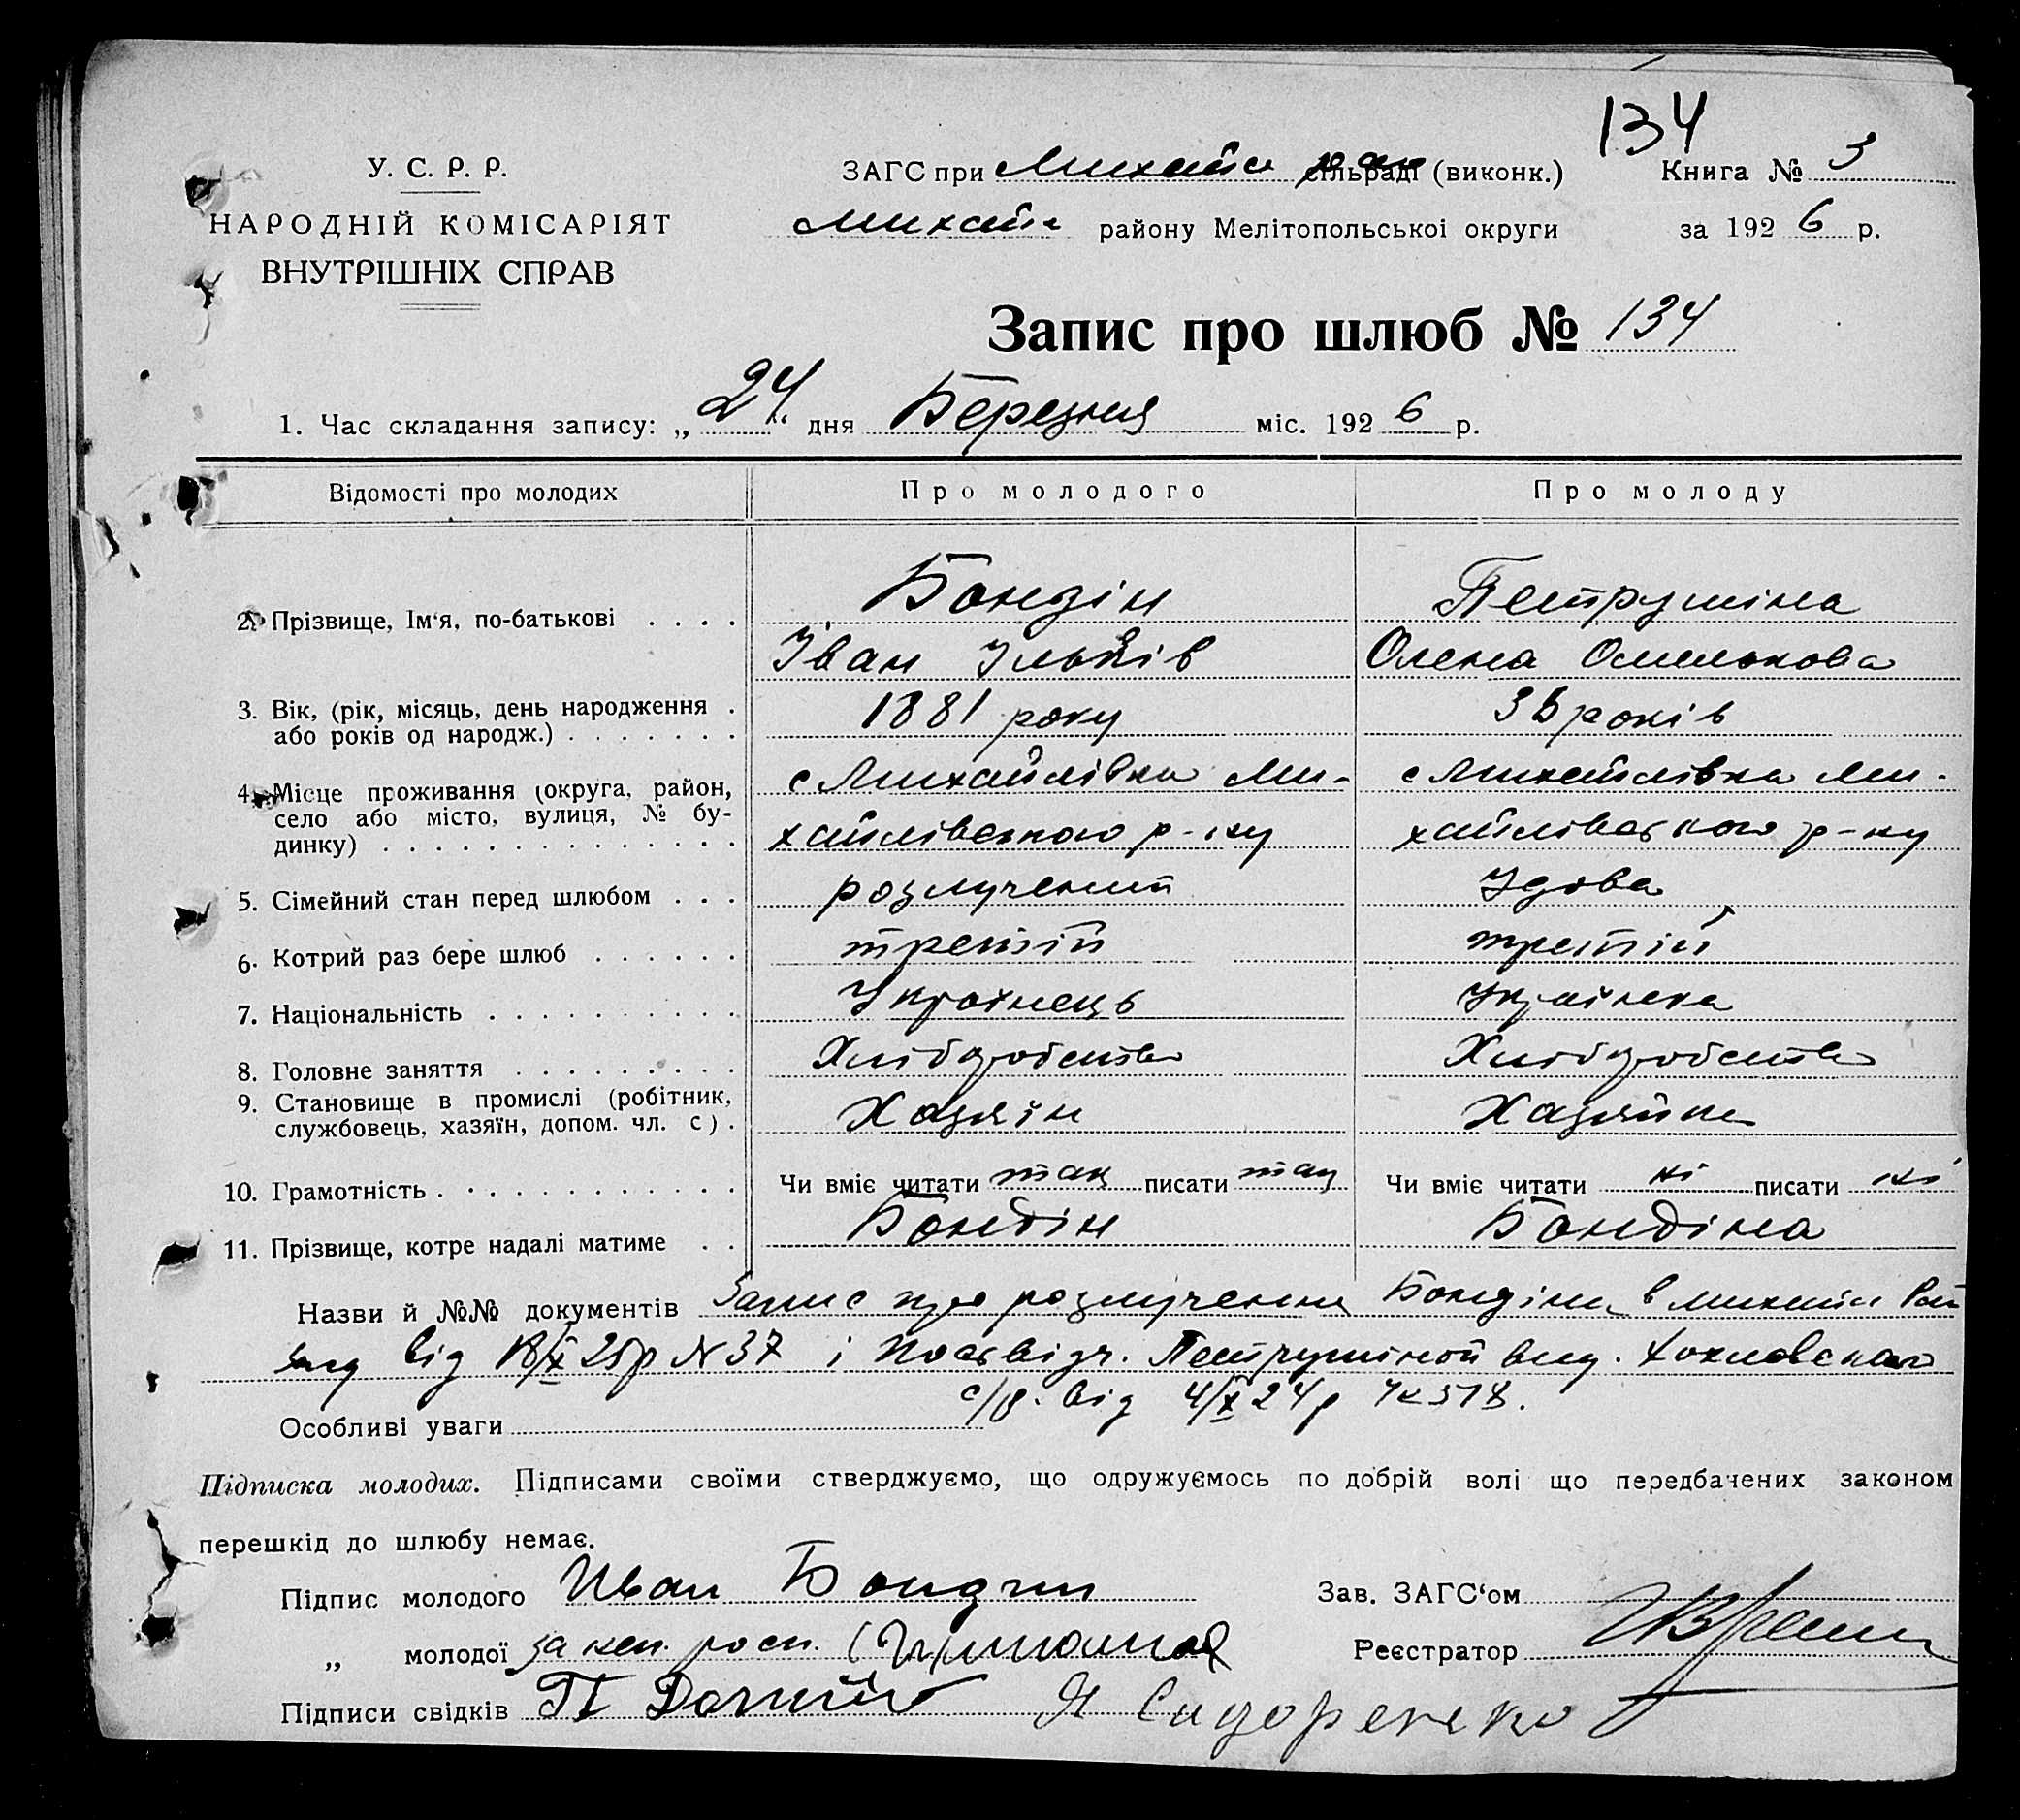 134
У. С. Р. Р.
НАРОДНІЙ КОМІСАРІЯТ
ВНУТРІШНІХ СПРАВ
ЗАГС при Михайл рай сільраді (виконк.) Книга № 3
Михайл району Мелітопольської округи за 1926 р.
Запис про шлюб № 134
1. Час складання запису: „24“ дня Березня міс. 1926 р.
Відомості про молодих Про молодого Про молоду
2. Прізвище, Ім‘я, по-батькові . . . . Бондін Петрушіна
Іван Ільків Олена Омелькова
3. Вік, (рік, місяць, день народження . 1881 року 35 років
або років од народж.) . . . . . . .
4. Місце проживання (округа, район, с Михайлівка Ми- с Михайлівка Ми-
село або місто, вулиця, № бу-
динку) . . . . . . . . . . . . . . хайлівського р-ну хайлівського р-ну
5. Сімейний стан перед шлюбом . . . розлучений Удова
6. Котрий раз бере шлюб . . . . . . третій третій
7. Національність . . . . . . . . . . Українець Українка
8. Головне заняття . . . . . . . . . Хліборобство Хліборобство
9. Становище в промислі (робітник,
службовець, хазяїн, допом. чл. с) . Хазяїн Хазяйка
10. Грамотність . . . . . . . . . . . . Чи вміє читати так писати так Чи вміє читати ні писати ні
11. Прізвище, котре надалі матиме . . Бондін Бондіна
Назви й №№ документів Запис про розлучення Бондіна в Михайл Рай
від 18/X 25р № 37 і Посвідч. Петрушіной вид. Хохловского
с/р. від 4/X 24р
Особливі уваги
Підписка молодих. Підписами своїми стверджуємо, що одружуємось по добрій волі що передбачених законом
перешкід до шлюбу немає.
Підпис молодого Иван Бондин Зав. ЗАГС‘ом
„ молодої за неп. росп. Реєстратор
Підписи свідків П Я Сидоренко